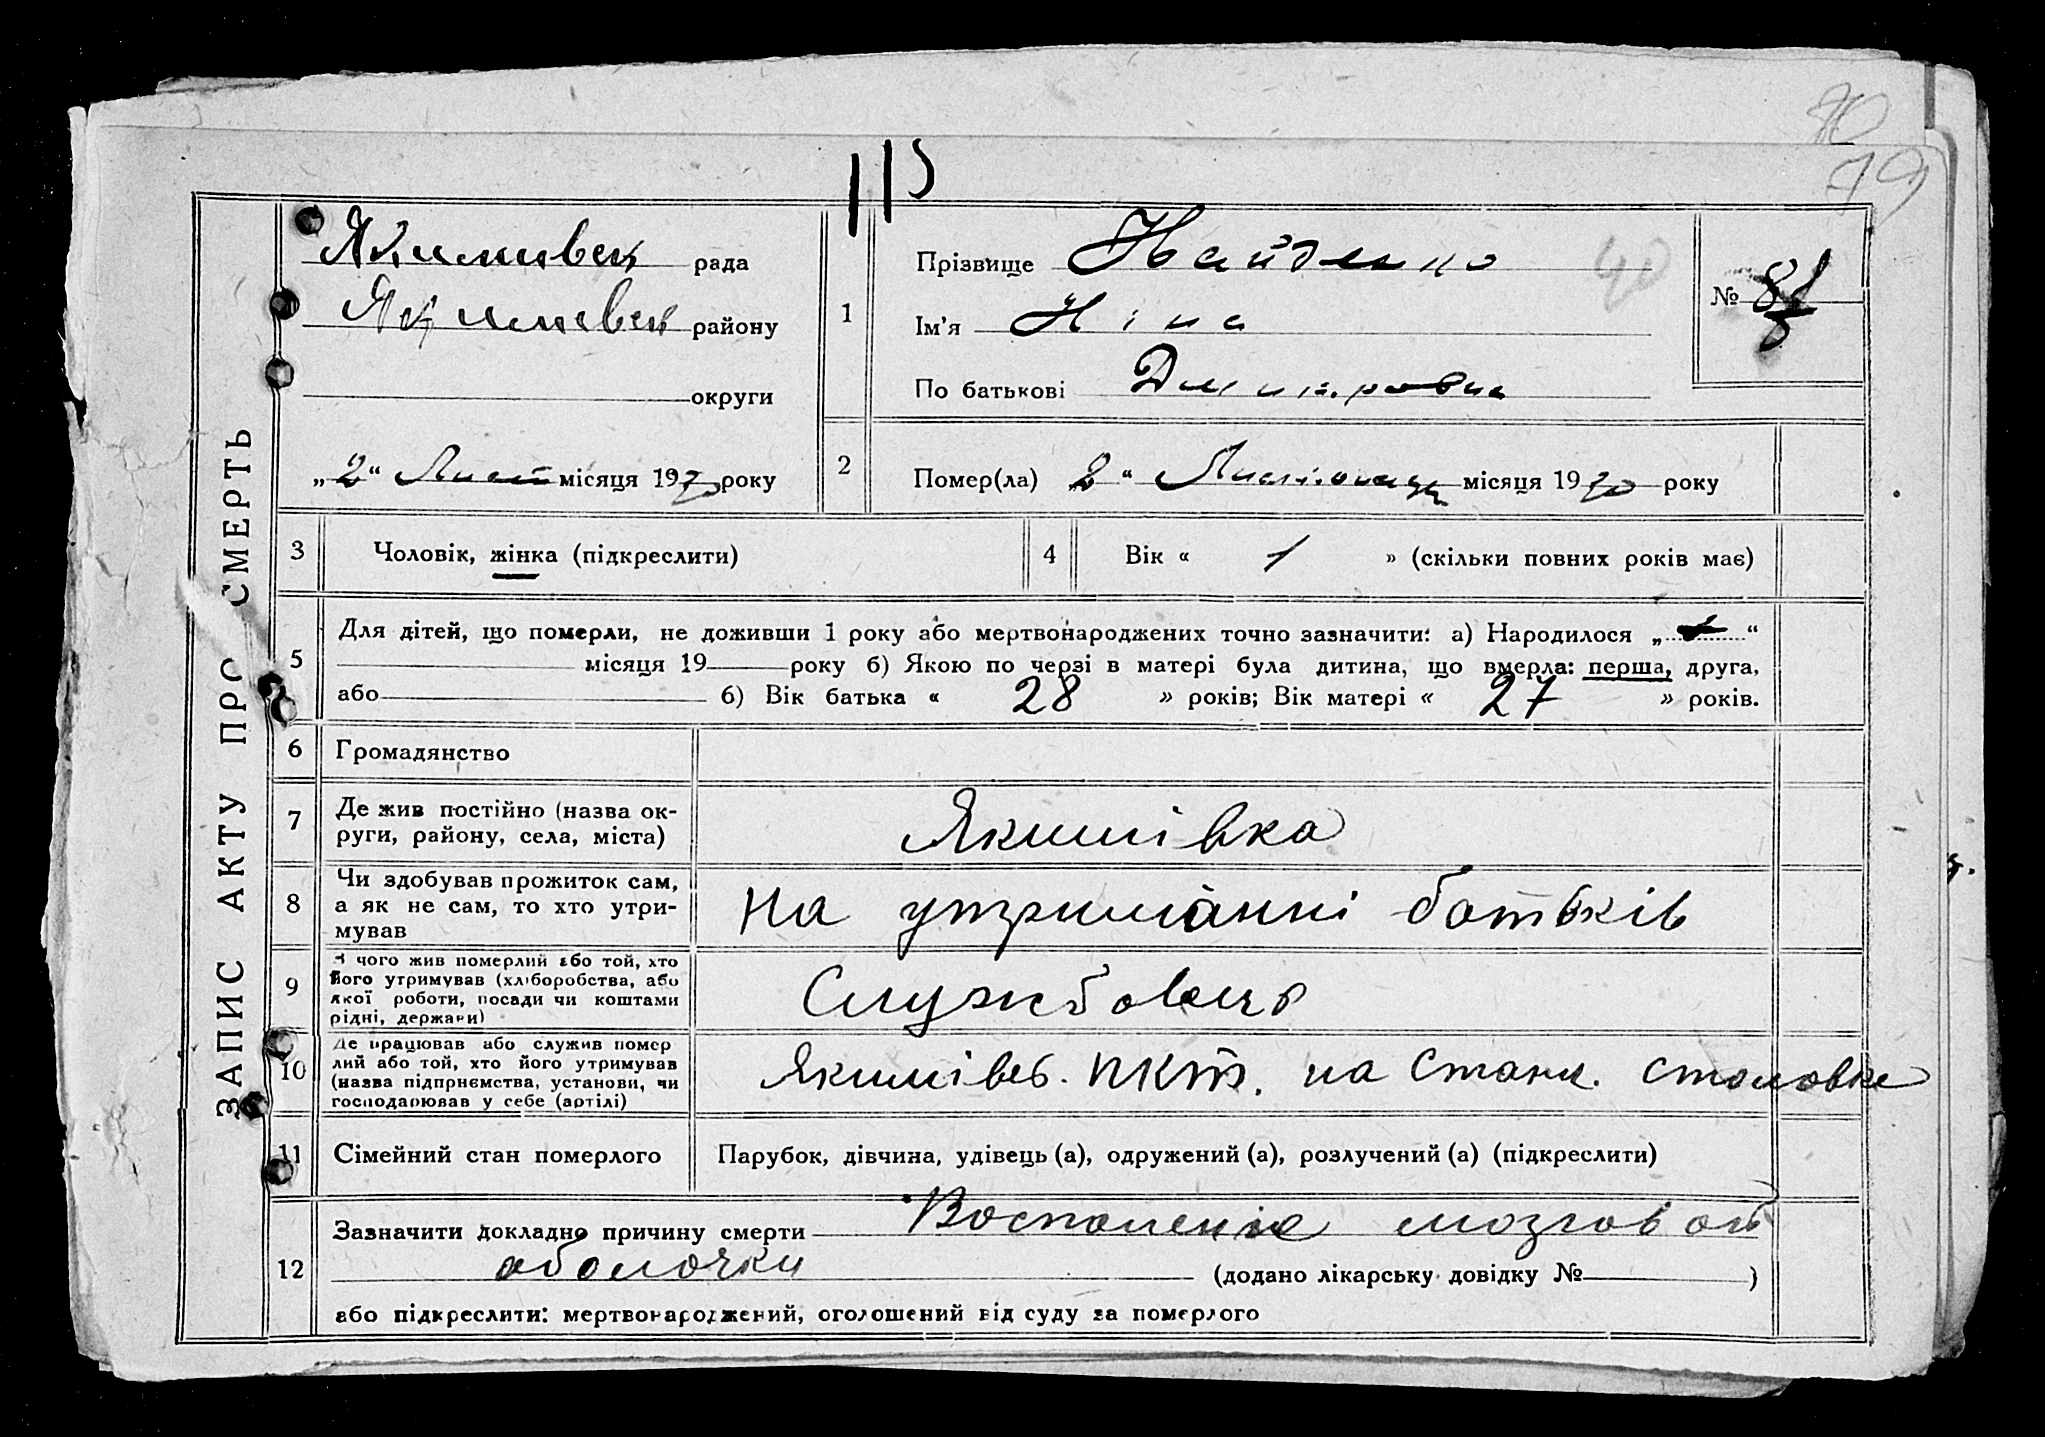 70
79
115
ЗАПИС АКТУ ПРО СМЕРТЬ
Якимівськ рада
Якимівськ району
округи
„2“ Лист місяця 1930 року
1
Прізвище Найденко
40
Ім'я Ніна
По батькові Дмитровна
№ 81
2
Помер(ла) „2“ Листопада місяця 1930 року
3 Чоловік, жінка (підкреслити)
4 Вік « 1 » (скільки повних років має)
5 Для дітей, що померли, не доживши 1 року або мертвонароджених точно зазначити: а) Народилося „ “
місяця 19 року б) Якою по черзі в матері була дитина, що вмерла: перша, друга,
або б) Вік батька « 28 » років; Вік матері « 27 » років.
6 Громадянство
7 Де жив постійно (назва ок-
руги, району, села, міста)
Якимівка
8 Чи здобував прожиток сам,
а як не сам, то хто утри-
мував
на утриманні батьків
9 З чого жив померлий або той, хто
його утримував (хліборобства, або
якої роботи, посади чи коштами
рідні, держави)
Службовець
10 Де працював або служив помер
лий або той, хто його утримував
(назва підприємства, установи, чи
господарював у себе (артілі)
Якимівс. ПКТ. на Станц. столовке
11 Сімейний стан померлого
Парубок, дівчина, удівець (а), одружений (а), розлучений (а) (підкреслити)
12 Зазначити докладно причину смерти Воспаление мозговой
оболочки (додано лікарську довідку № )
або підкреслити: мертвонароджений, оголошений від суду за померлого